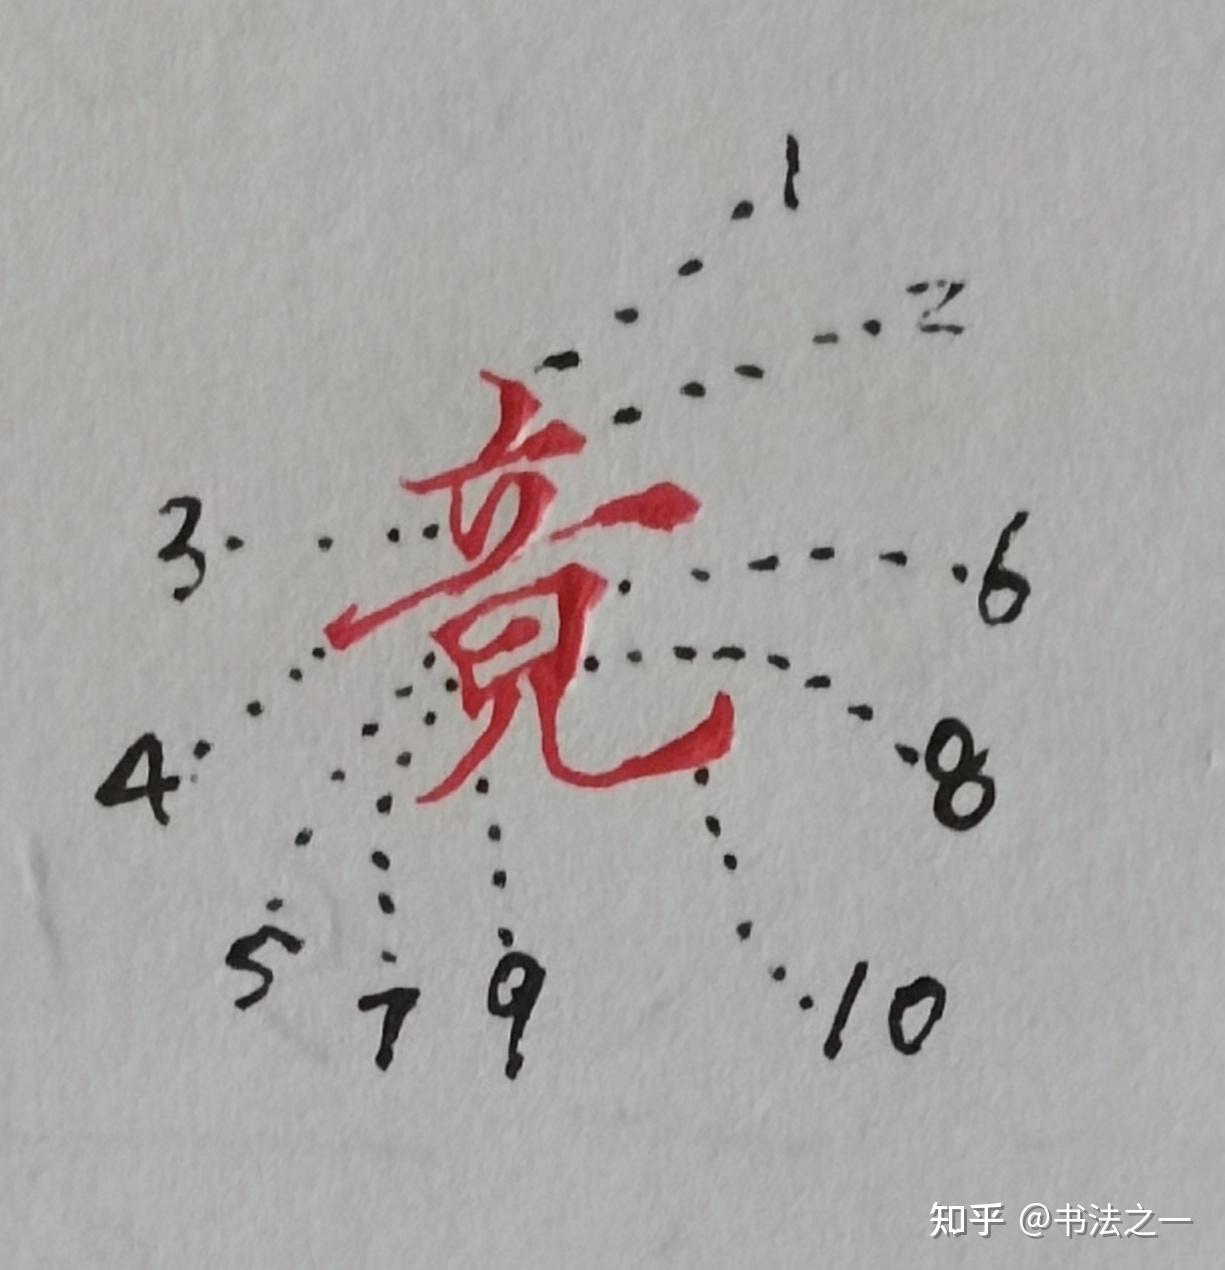 1
2
竟
3
6
4
8
5
7
9
10
知乎 @书法之一